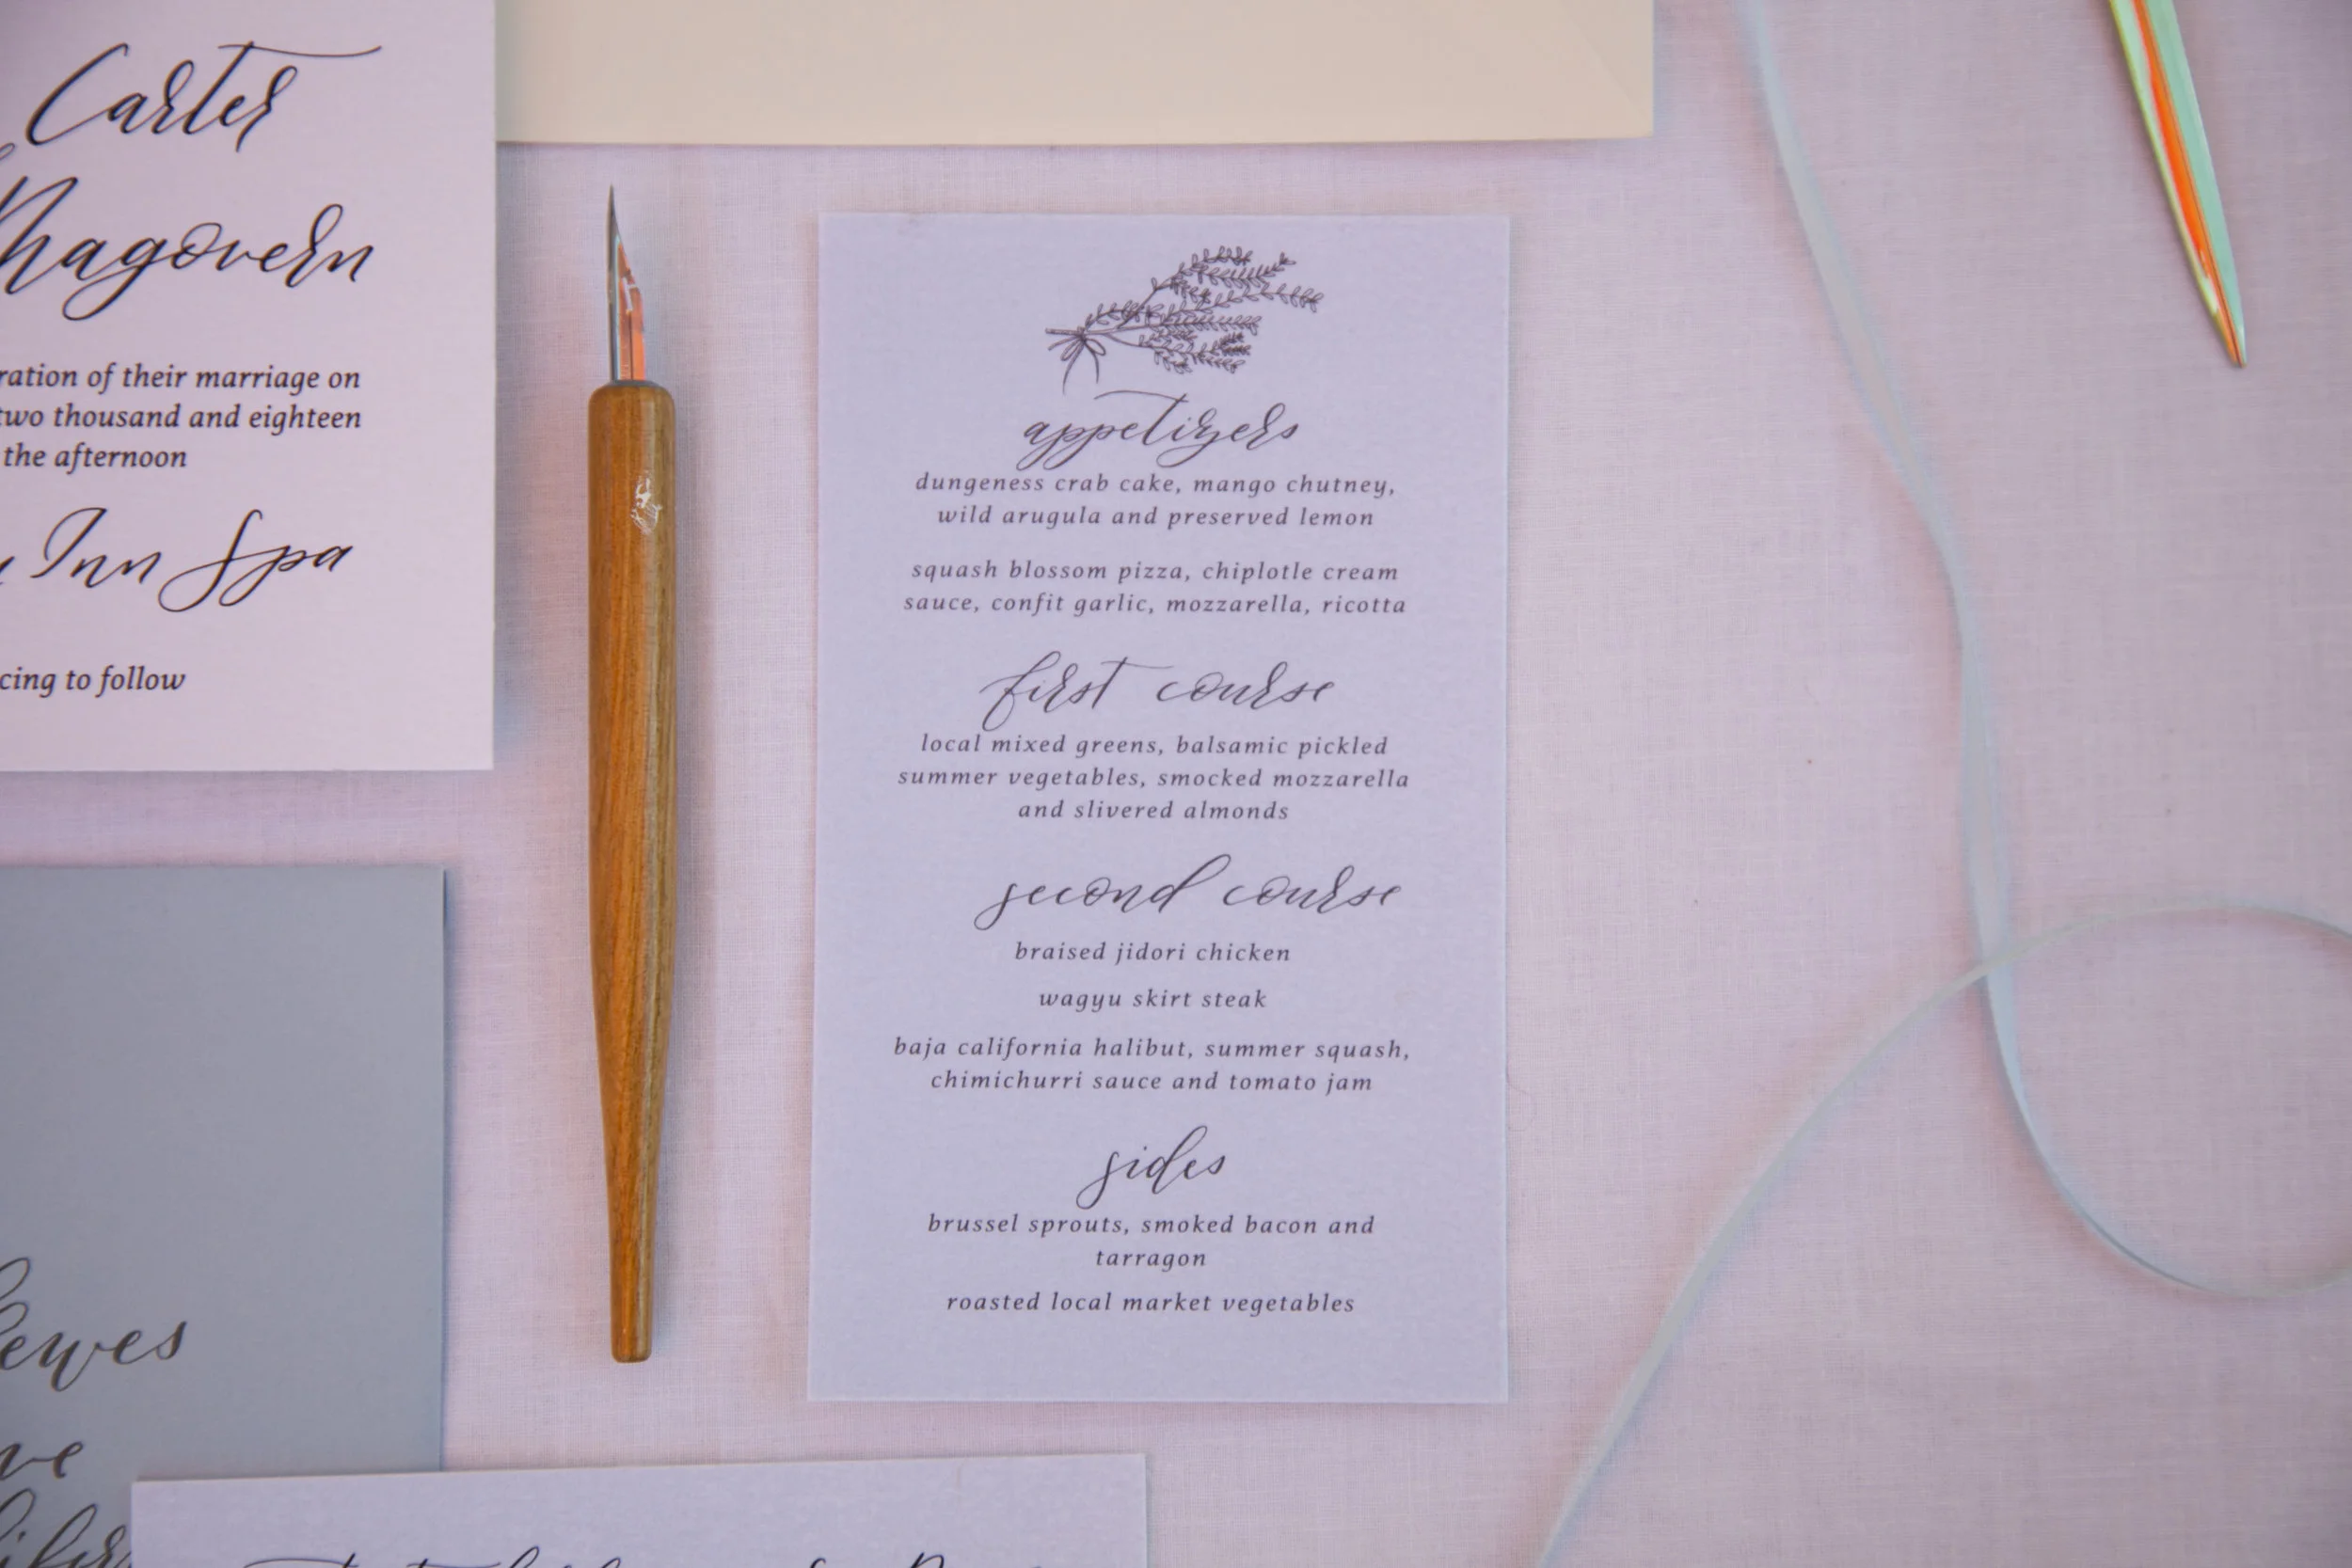 Carter
Magovern
ration of their marriage on
two thousand and eighteen
the afternoon
Inn Spa
cing to follow
appetizers
dungeness crab cake, mango chutney,
wild arugula and preserved lemon
squash blossom pizza, chiplotle cream
sauce, confit garlic, mozzarella, ricotta
first course
local mixed greens, balsamic pickled
summer vegetables, smocked mozzarella
and slivered almonds
second course
braised jidori chicken
wagyu skirt steak
baja california halibut, summer squash,
chimichurri sauce and tomato jam
sides
brussel sprouts, smoked bacon and
tarragon
roasted local market vegetables